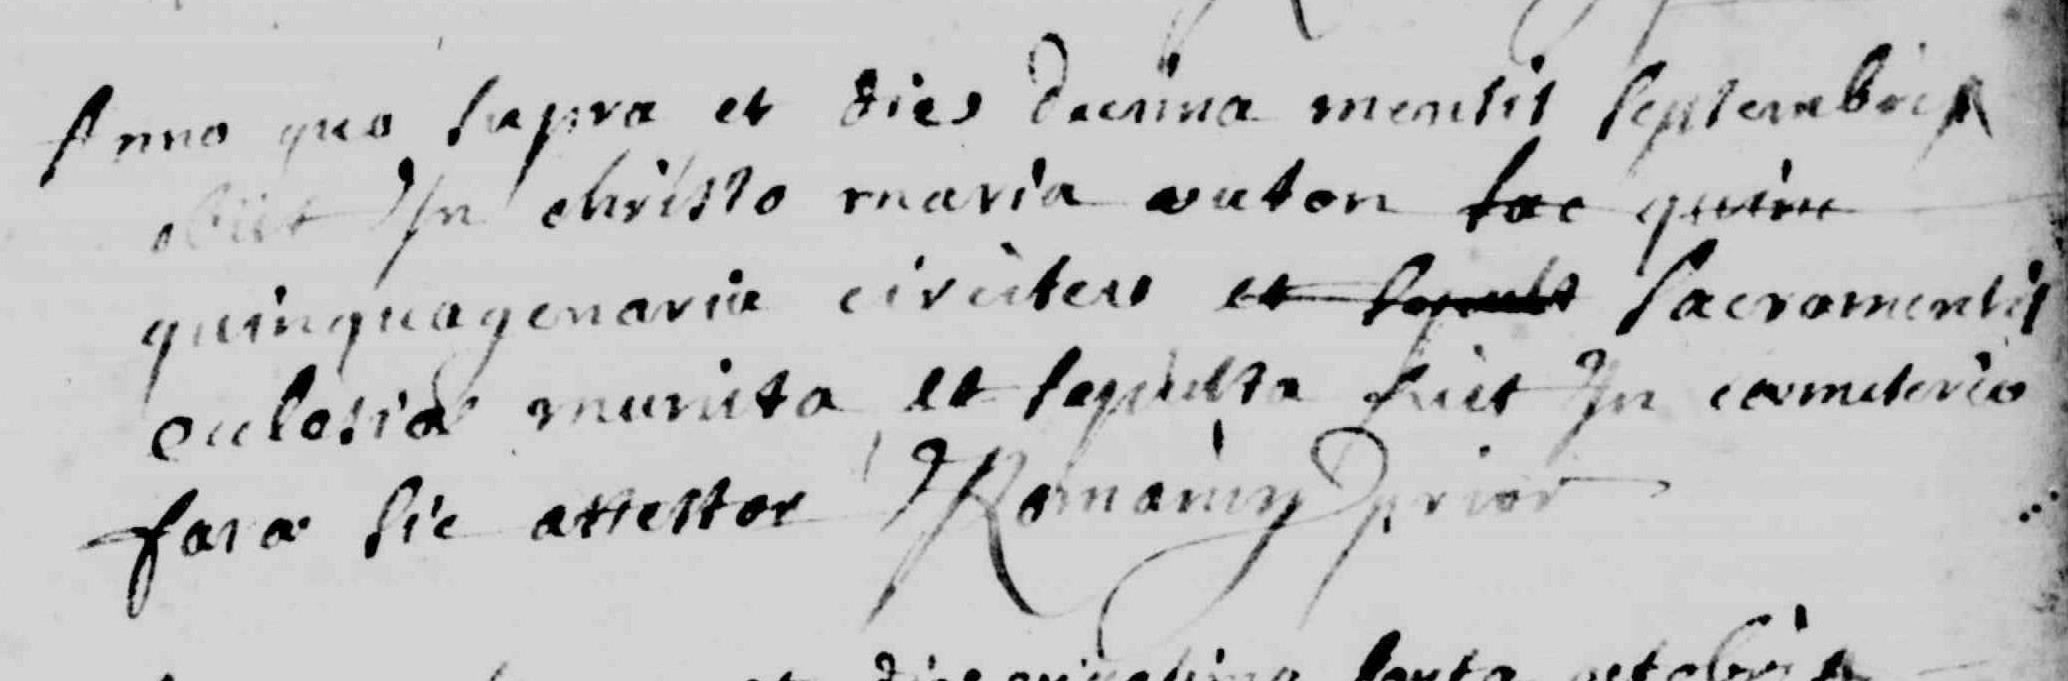 Anno quo supra et dies decima mensis septembris
obiit In christo maria auton sac quinc
quinquagenaria circiter et sepult sacramentis
ecclesiae munita et sepulta fuit In coemeterio
farae sic attestor Romanin prior
et dies vigesima sexta octobris